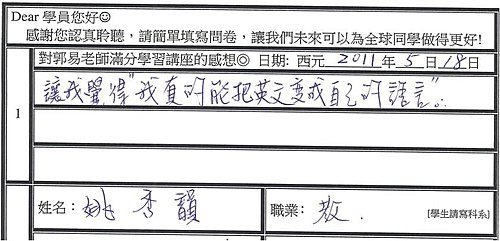 Dear 學員您好☺
感謝您認真聆聽，請簡單填寫問卷，讓我們未來可以為全球同學做得更好!
對郭易老師滿分學習講座的感想◎ 日期: 西元 2011 年 5 月 18 日
1
讓我覺得"我真的能把英文变成自己的語言"。
姓名： 姚香韻 職業： 教. [學生請寫科系]